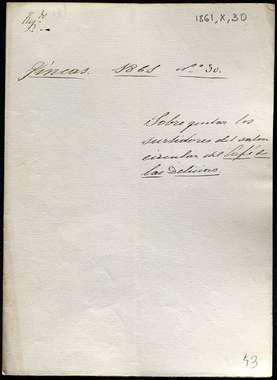 1861, X, 30
Fincas. 1861 nº 30.
Sobre quitar los
surtidores del salon
circular del Café de
las Delicias
43